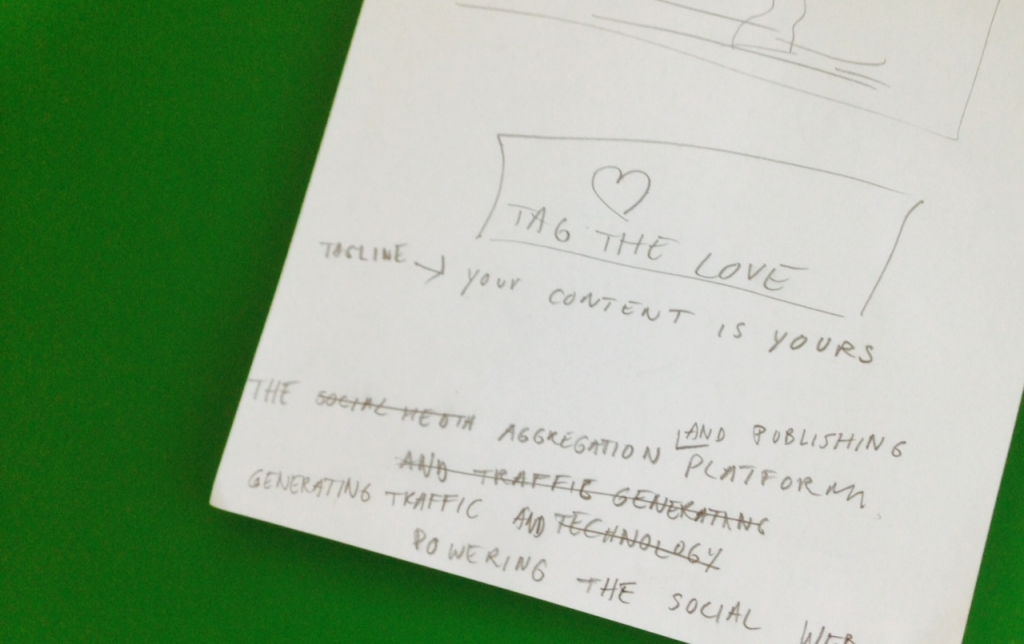 TAG THE LOVE
TAGLINE → your CONTENT IS YOURS
THE SOCIAL MEDIA AGGREGATION AND PUBLISHING
PLATFORM
AND TRAFFIC GENERATING
GENERATING TRAFFIC AND TECHNOLOGY
POWERING THE SOCIAL WEB